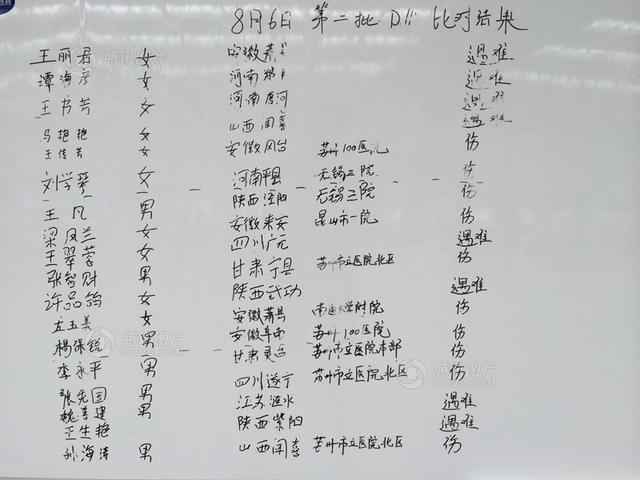 8月6日 第二批 D 比对结果
王丽君 女 安徽萧 遇难
谭海彦 女 河南 遇难
王书芳 女 河南唐河 遇难
马艳艳 女 山西闻喜 遇难
王传芳 女 安徽凤台 苏州100医院 伤
刘学琴 女 河南平县 无锡三院 伤
王凡 男 陕西泾阳 无锡三院 伤
梁凤兰 女 安徽来安 昆山市一院 伤
王翠蓉 女 四川广元 遇难
张智财 男 甘肃宁县 苏州市立医院北区 伤
许品鸽 女 陕西武功 遇难
左玉美 女 安徽萧县 南通大学附院 伤
杨保锐 男 安徽阜南 苏州100医院 伤
李永平 男 甘肃灵台 苏州市立医院本部 伤
张先国 男 四川遂宁 苏州市立医院北区 伤
魏善建 男 江苏涟水 遇难
王生艳 陕西紫阳 遇难
孙海涛 男 山西闻喜 苏州市立医院北区 伤
腾讯图片
腾讯图片
腾讯图片
腾讯图片